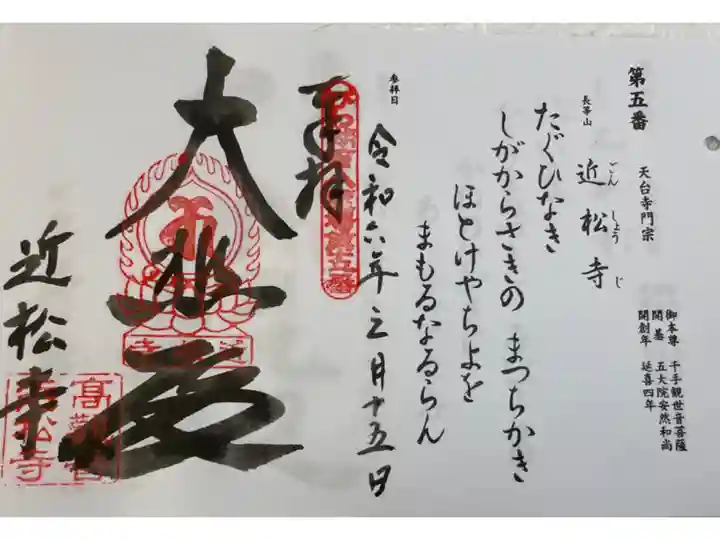 第五番
天台寺門宗
長等山
近松寺
ごんしょうじ
御本尊 千手観世音菩薩
開基 五大院安然和尚
開創年 延喜四年
たぐひなき
しがからさきの まつちかき
ほとけやちよを
まもるなるらん
参拝日
令和六年三月十五日
奉拝
大悲殿
近松寺